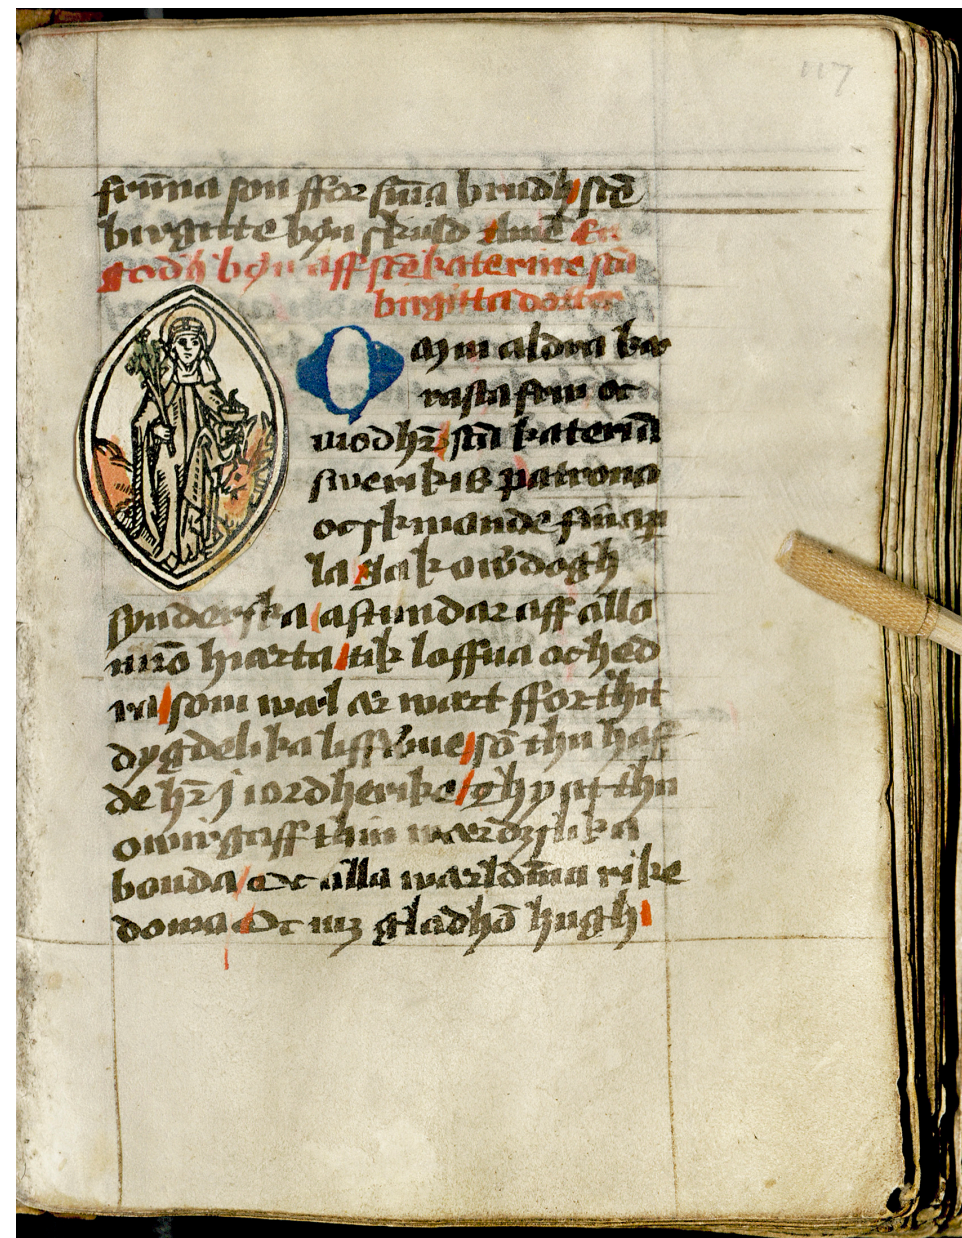 117
sinna son ffor sina brudh / scē
birgitte bøn skuld Amē En
godh bøn aff scē katerine scā
birgitta dotter
O Myn aldra kæ
rasta frw oc
modhr̄ / scā katerīa
swerikis patrona
oc skinande
la
synderska / astundar aff allo
mīo hiærta / tik loffua oc hed
ra / som wæl ær wært ffor thit
dygdelika liffwīne / sō thu haf
de hr̄ j iordherike / Thy at thu
owirgaff thin wærdzslika
bonda / Oc alla wærldīna rike
doma Oc mz gladhō hugh /